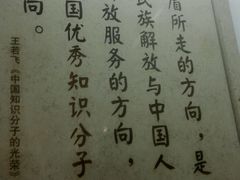 所走的方向，是
民族解放与中国人
放服务的方向，
国优秀知识分子
向。
王若飞《中国知识分子的光荣》